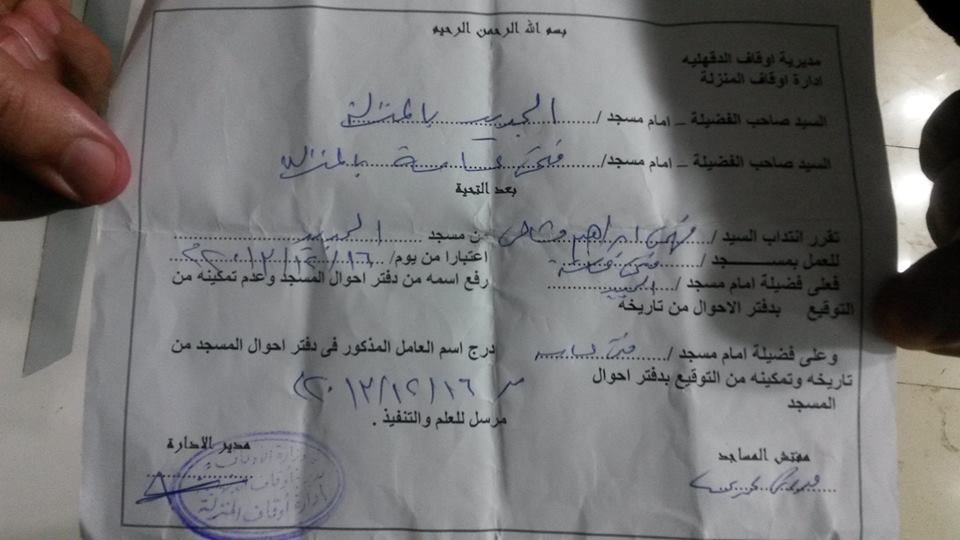 بسم الله الرحمن الرحيم
مديرية اوقاف الدقهليه
ادارة اوقاف المنزلة
السيد صاحب الفضيلة – امام مسجد / الجديد بالمنزلة
السيد صاحب الفضيلة – امام مسجد / بالمنزلة
بعد التحية
تقرر انتداب السيد / ابراهيم من مسجد الجديد
للعمل بمسجد / اعتبارا من يوم / ١٦/١٢/٢٠١٢م
فعلى فضيلة امام مسجد / الجديد رفع اسمه من دفتر احوال المسجد وعدم تمكينه من
التوقيع بدفتر الاحوال من تاريخه
وعلى فضيلة امام مسجد / درج اسم العامل المذكور فى دفتر احوال المسجد من
تاريخه وتمكينه من التوقيع بدفتر احوال
المسجد
١٦/١٢/٢٠١٢
مرسل للعلم والتنفيذ .
مفتش المساجد
مدير الادارة
وزارة الاوقاف
ادارة أوقاف المنزلة